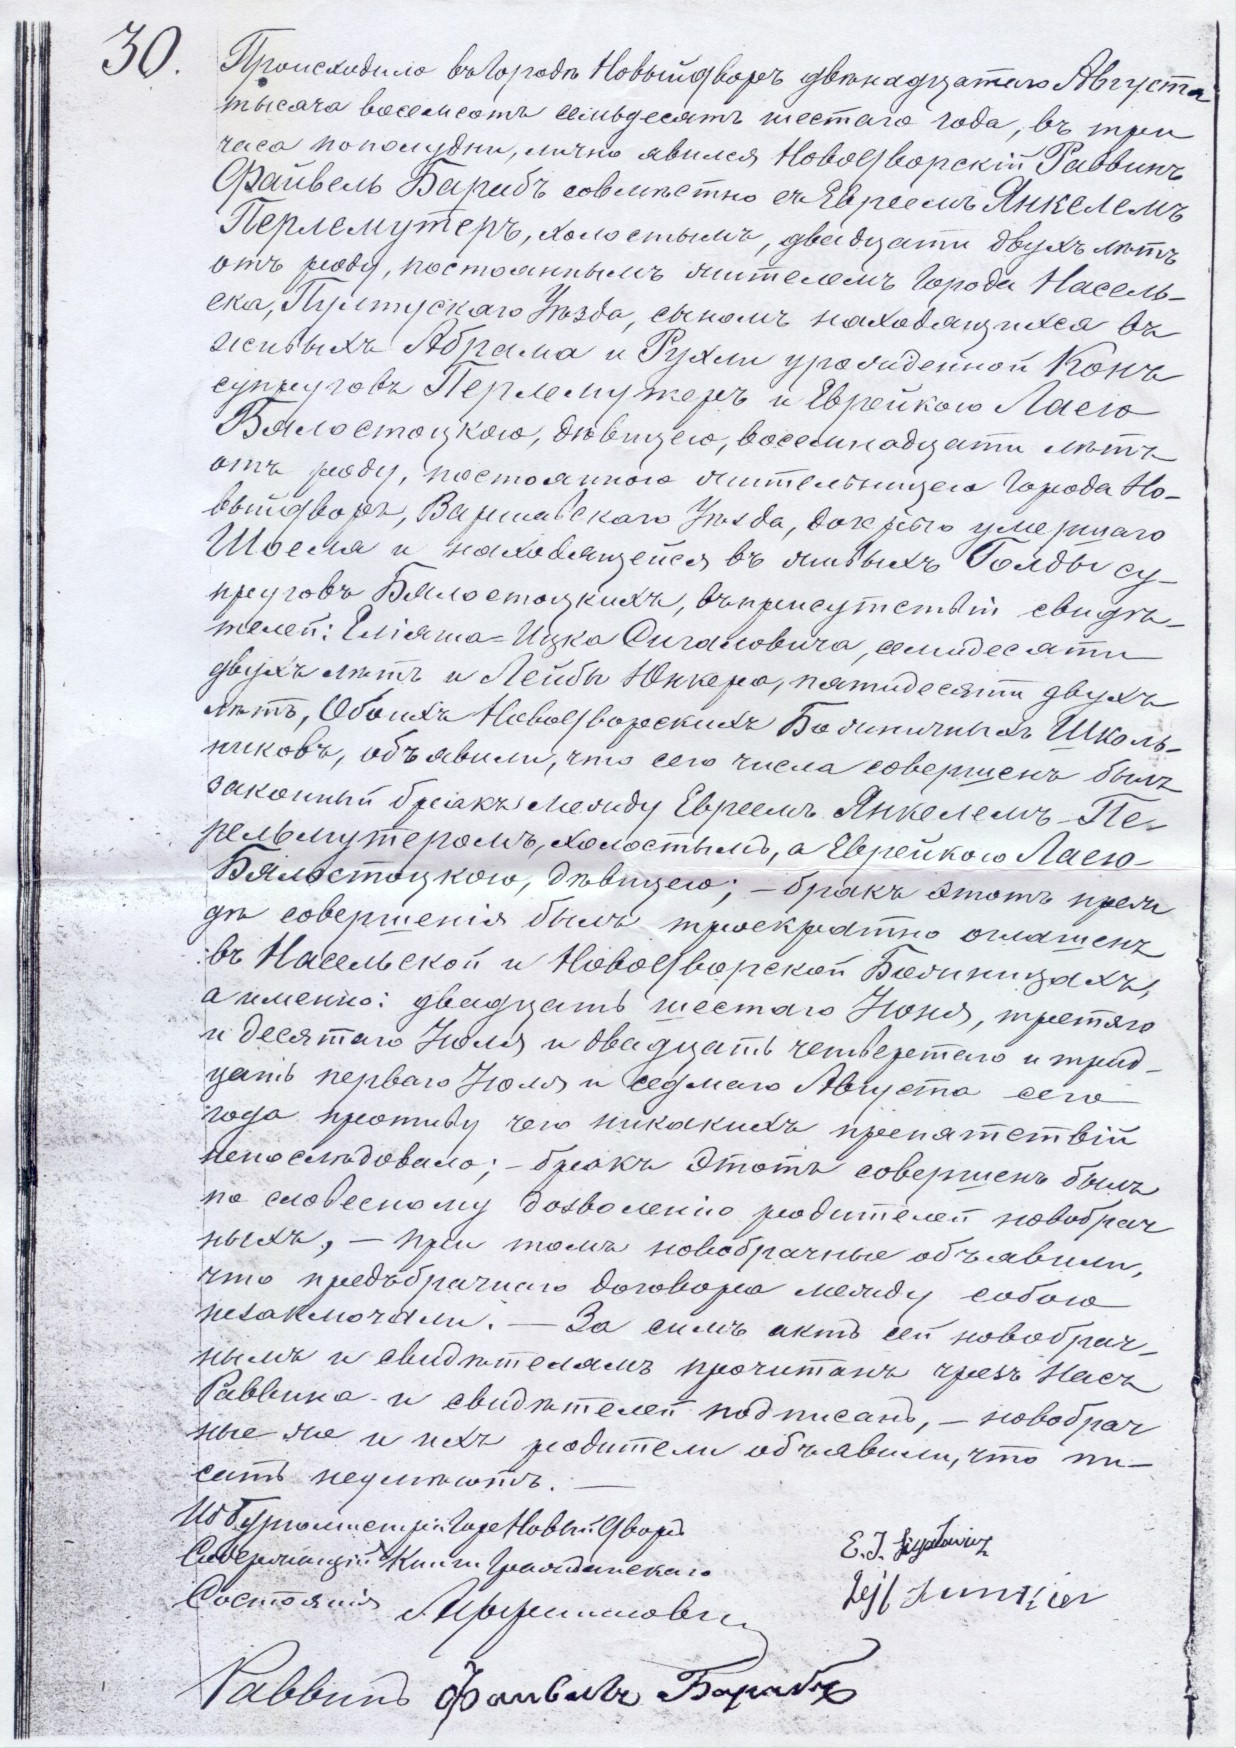 30.
Происходило въ Городѣ Новыйдворъ двѣнадцатаго Августа
тысяча восемсотъ семьдесятъ шестаго года, въ три
часа пополудни, лично явился Новодворскій Раввинъ
Файвель Барабъ совмѣстно съ Евреемъ Янкелемъ
Перлемутеръ, холостымъ, двадцати двухъ лѣтъ
отъ роду, постояннымъ жителемъ Города Насель-
ска, Пултускаго Уѣзда, сыномъ находящихся въ
живыхъ Абрама и Рухли урожденной Конъ
супруговъ Перлемутеръ и Еврейкою Ласею
Бялостоцкою, дѣвицею, восемнадцати лѣтъ
отъ роду, постоянною жительницею Города Но-
выйдворъ, Варшавскаго Уѣзда, дочерью умершаго
Шоеля и находящейся въ живыхъ Голды су-
пруговъ Бялостоцкихъ, въ присутствіи свидѣ-
телей: Еліяша-Ицка Сигаловича, семидесяти
двухъ лѣтъ и Лейбы Юнкера, пятидесяти двухъ
лѣтъ, Обоихъ Новодворскихъ Божничныхъ Школь-
никовъ, объявили, что сего числа совершенъ былъ
законный бракъ между Евреемъ Янкелемъ Пе-
рельмутеромъ, холостымъ, а Еврейкою Ласею
Бялостоцкою, дѣвицею; - бракъ этотъ преж
де совершенія былъ троекратно оглашенъ
въ Насельской и Новодворской Божницахъ,
а именно: двадцать шестаго Юня, третяго
и десятаго Юля и двадцать четвертаго и трид-
цать перваго Юля и седмаго Августа сего
года противу чего никакихъ препятствій
непослѣдовало; - бракъ этотъ совершенъ былъ
по словесному дозволенію родителей новобрач
ныхъ, - при томъ новобрачные объявили,
что предъбрачнаго договора между собою
незаключали. - За симъ актъ сей новобрач-
нымъ и свидѣтелямъ прочитанъ чрезъ Насъ
Раввина и свидѣтелей подписанъ, - новобрач
ные же и ихъ родители объявили, что пи-
сать неумѣютъ. -
Ио Бурмистра Гор. Новыйдворъ
Содержащій Книги Гражданскаго
Состоянія
E. I. Sigałowicz
Lejb Junkier
Раввинъ Файвель Барабъ